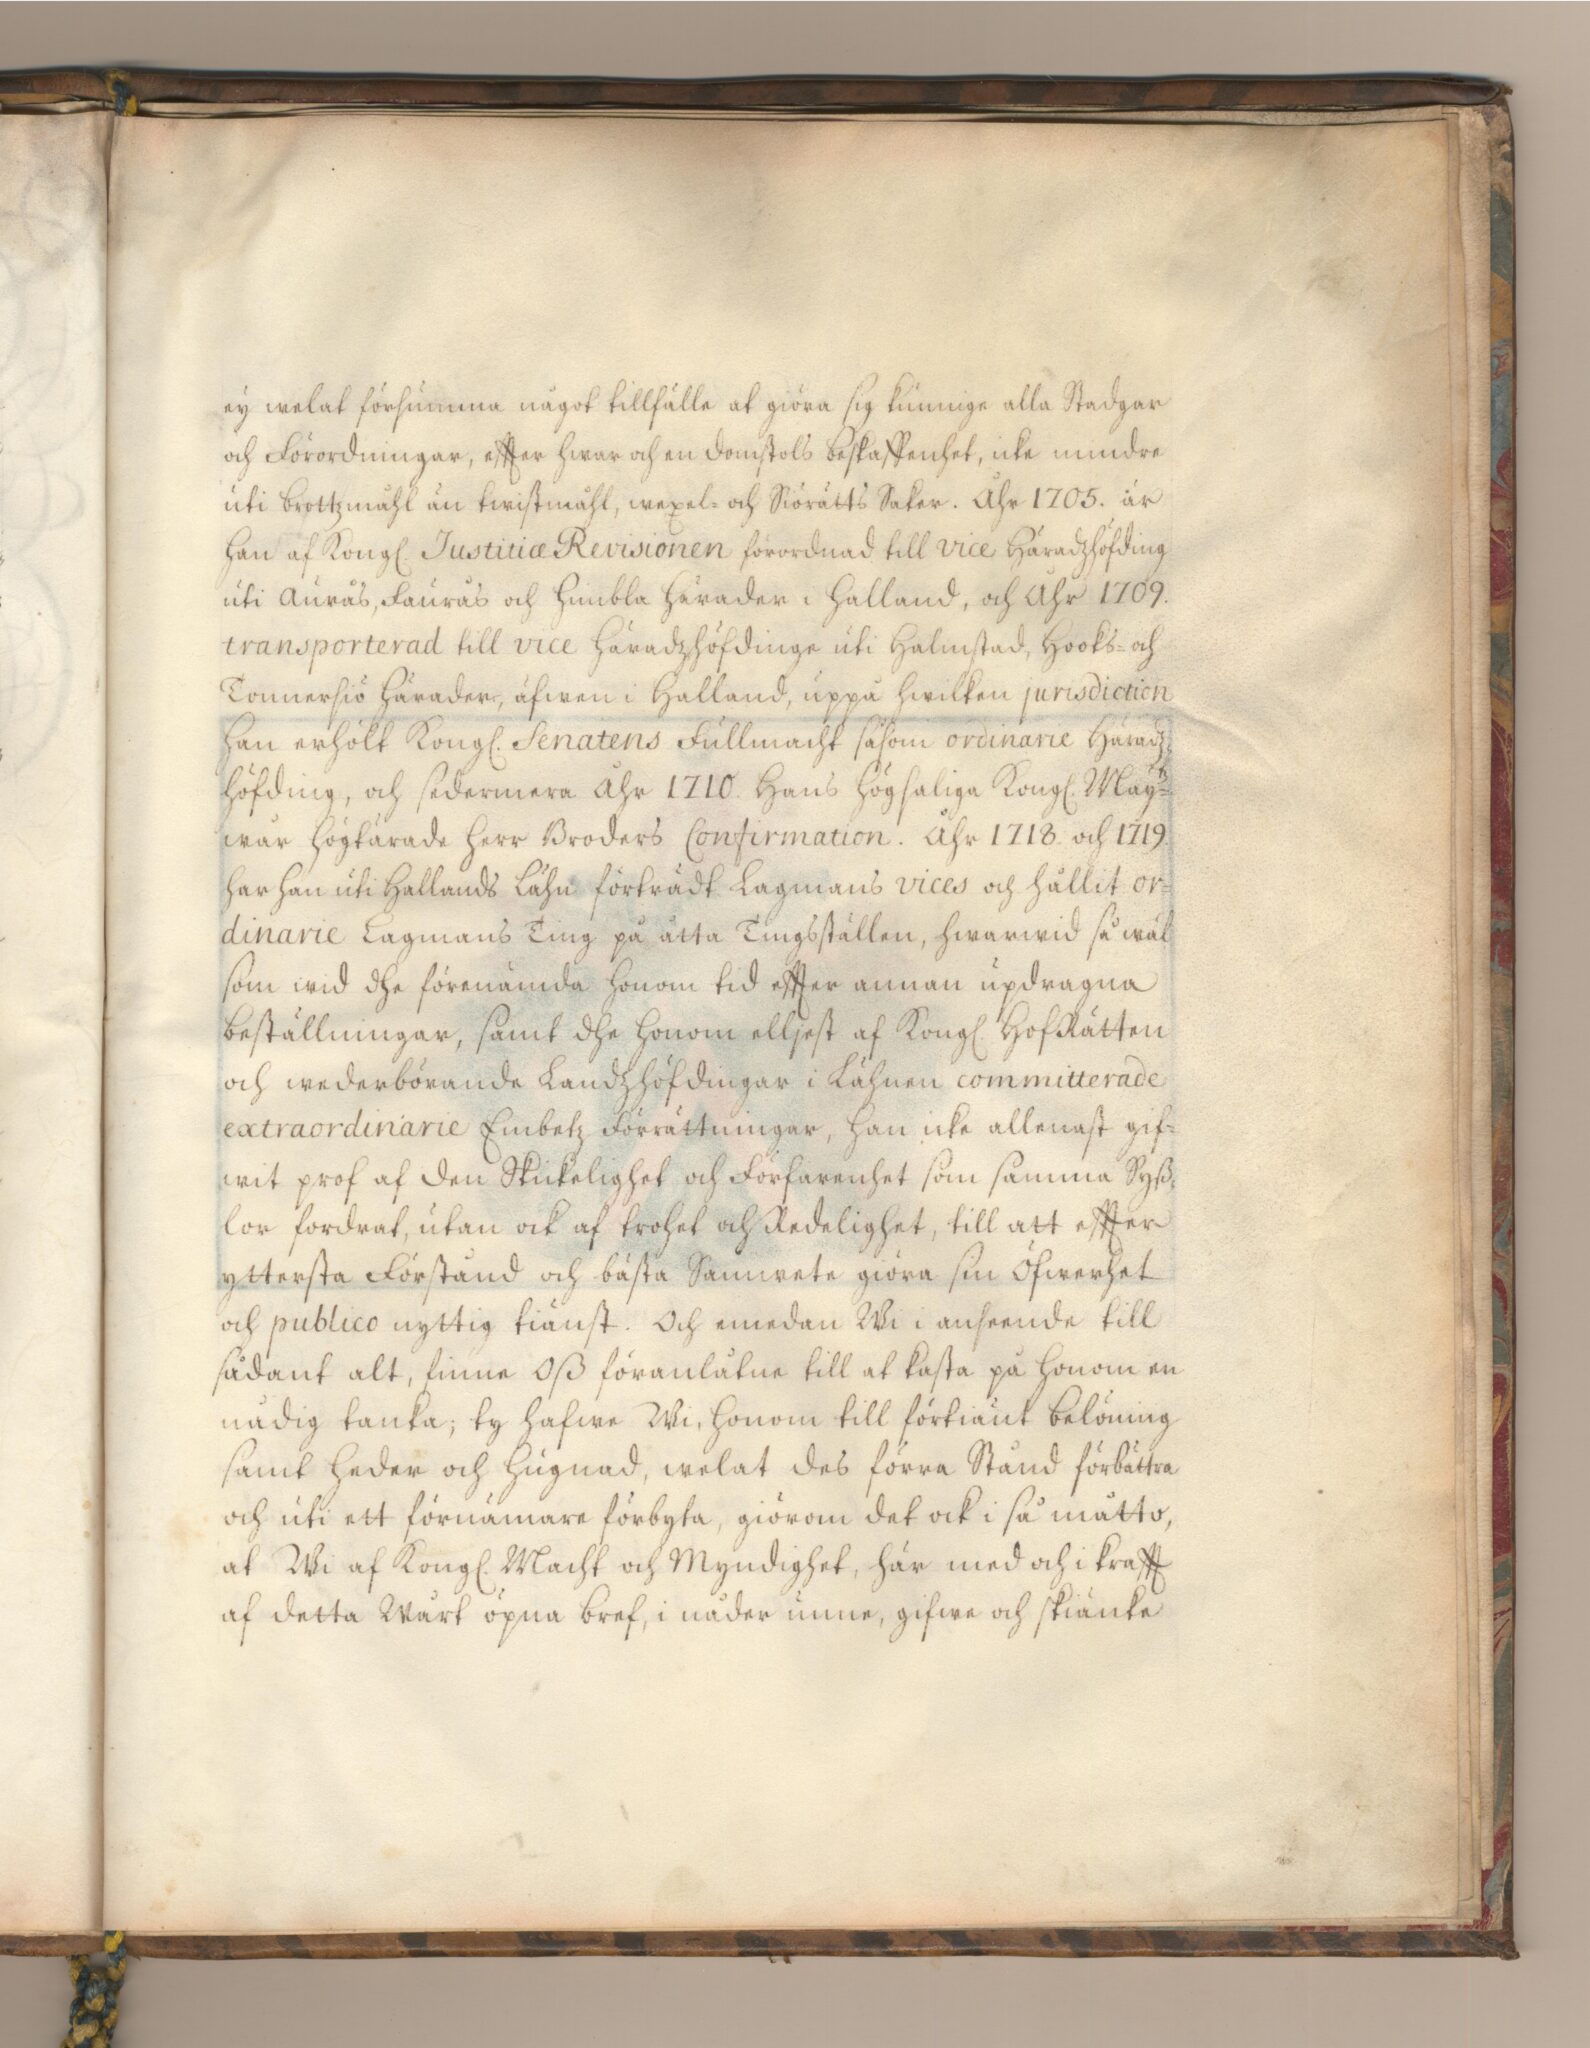 ey welat försumma något tillfälle at giöra sig kunnige alla Stadgar
och Förordningar, effter hwar och en domstols beskaffenhet, icke mindre
uti brottzmåhl än twistmåhl, wexel- och Siörätts Saker. Åhr 1705. är
han af Kongl. Justitiæ Revisionen förordnad till vice Häradzhöfding
uti Aurås, Faurås och Himbla Härader i Halland, och Åhr 1709.
transporterad till vice Häradzhöfdinge uti Halmstad, Hooks- och
Tönnersiö Härader, äfwen i Halland, uppå hwilken jurisdiction
han erhölt Kongl. Senatens Fullmacht såsom ordinarie Häradz
höfding, och sedermera Åhr 1710. Hans Högsaliga Kongl. Maytz
wår högtärade Herr Broders Confirmation. Åhr 1718. och 1719.
har han uti Hallands Lähn förträdt Lagmans vices och hållit or-
dinarie Lagmans Ting på åtta Tingsställen, hwarwid så wäl
som wid dhe förenämda honom tid effter annan updragna
beställningar, samt dhe honom elljest af Kongl. HofRätten
och wederbörande Landzhöfdingar i Lähnen committerade
extraordinarie Embetz Förrättningar, han icke allenast gif-
wit prof af den Skickelighet och Förfarenhet som samma Syß-
lor fordrat, utan ock af trohet och Redelighet, till att effter
yttersta Förstånd och bästa Samwete giöra sin Öfwerhet
och publico nyttig tiänst. Och emedan Wi i anseende till
sådant alt, finne Oß föranlåtne till at kasta på honom en
nådig tanka; ty hafwe Wi, honom till förtiänt belöning
samt heder och hugnad, welat des förra Stånd förbättra
och uti ett förnämare förbyta, giörom det ock i så måtto,
at Wi af Kongl. Macht och Myndighet, här med och i krafft
af detta Wårt öpna bref, i nåder unne, gifwe och skiänke